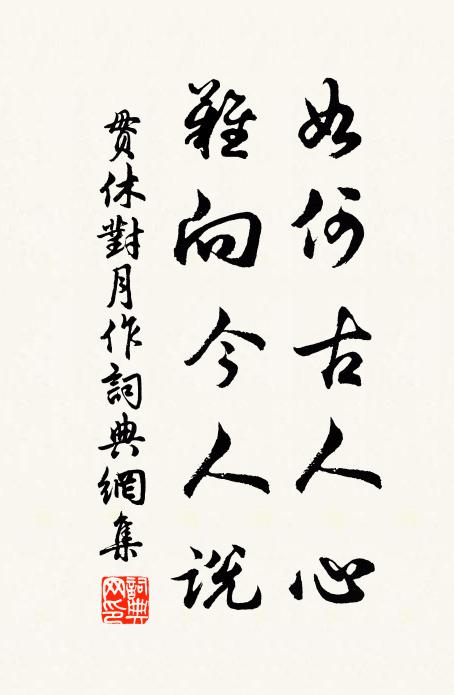 如何古人心
難向今人說
貫休對月作詞典網集
詞典網印